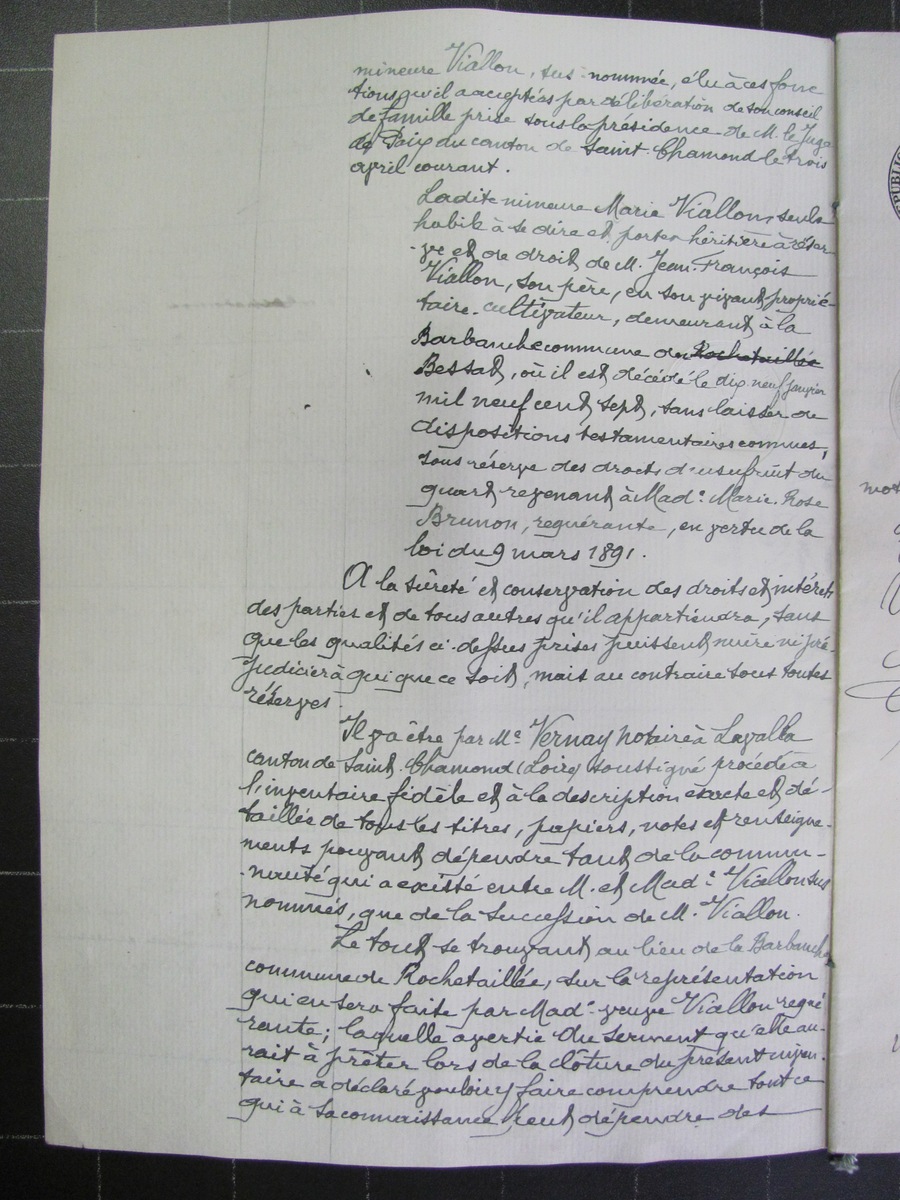 mineure Viallon, sus-nommée, élu à ces fonc
tions qu'il a acceptées par délibération de son conseil
de famille prise sous la présidence de M. le Juge
de Paix du canton de Saint-Chamond le trois
avril courant.
Ladite mineure Marie Viallon, seule
habile à se dire et porter héritière à réser
-ve et de droit de M. Jean-François
Viallon, son père, en son vivant proprié-
taire-cultivateur, demeurant à la
Barbanche commune du Rochetaillée
Bessat, où il est décédé le dix neuf janvier
mil neuf cent sept, sans laisser de
dispositions testamentaires connues,
sous réserve des droits d'usufruit du
quart revenant à Made Marie-Rose
Brunon, requérante, en vertu de la
loi du 9 mars 1891.
A la sûreté et conservation des droits et intérêts
des parties et de tous autres qu'il appartiendra, sans
que les qualités ci-dessus prises puissent nuire ni pré-
judicier à qui que ce soit, mais au contraire sous toutes
réserves.
Il va être par Me Vernay notaire à Lavalla
canton de Saint-Chamond (Loire) soussigné procédé à
l'inventaire fidèle et à la description exacte et dé-
taillée de tous les titres, papiers, notes et renseigne-
ments pouvant dépendre tant de la commu-
-nauté qui a existé entre M. et Made Viallon sus
nommés, que de la succession de M. Viallon.
Le tout se trouvant au lieu de la Barbanche
commune de Rochetaillée, sur la représentation
qui en sera faite par Made veuve Viallon requé
rante; laquelle avertie du serment qu'elle au-
rait à prêter lors de la clôture du présent inven-
taire a déclaré vouloir y faire comprendre tout ce
qui à sa connaissance peut dépendre des